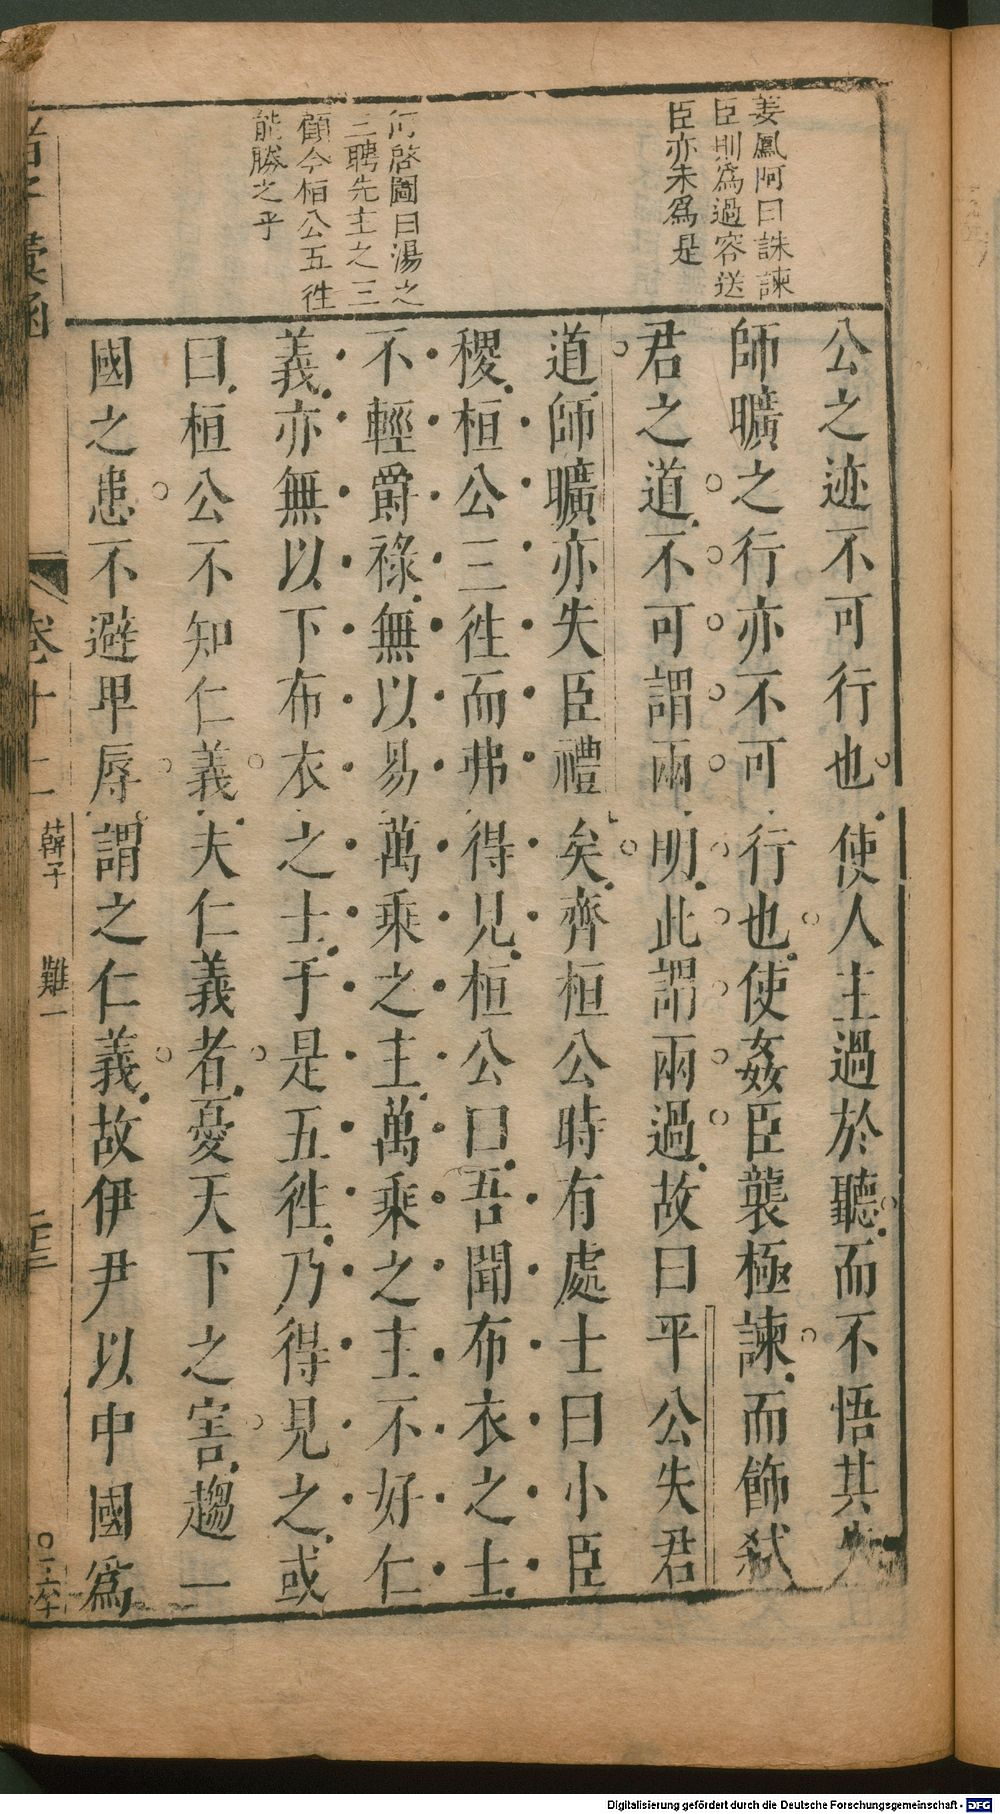 姜鳳阿曰誅諫
臣則為過容送
臣亦未為是
何啓圖曰湯之
三聘先主之三
顧今桓公五徃
能勝之乎
公之迹不可行也使人主過於聽而不悟其失
師曠之行亦不可行也使姦臣襲極諫而飾弑
君之道不可謂兩明此謂兩過故曰平公失君
道師曠亦失臣禮矣齊桓公時有處士曰小臣
稷桓公三徃而弗得見桓公曰吾聞布衣之士
不輕爵祿無以易萬乘之主萬乘之主不好仁
義亦無以下布衣之士于是五徃乃得見之或
曰桓公不知仁義夫仁義者憂天下之害趨一
國之患不避卑辱謂之仁義故伊尹以中國為
諸子彙函 卷十二 韓子 難一
Digitalisierung gefördert durch die Deutsche Forschungsgemeinschaft - DFG